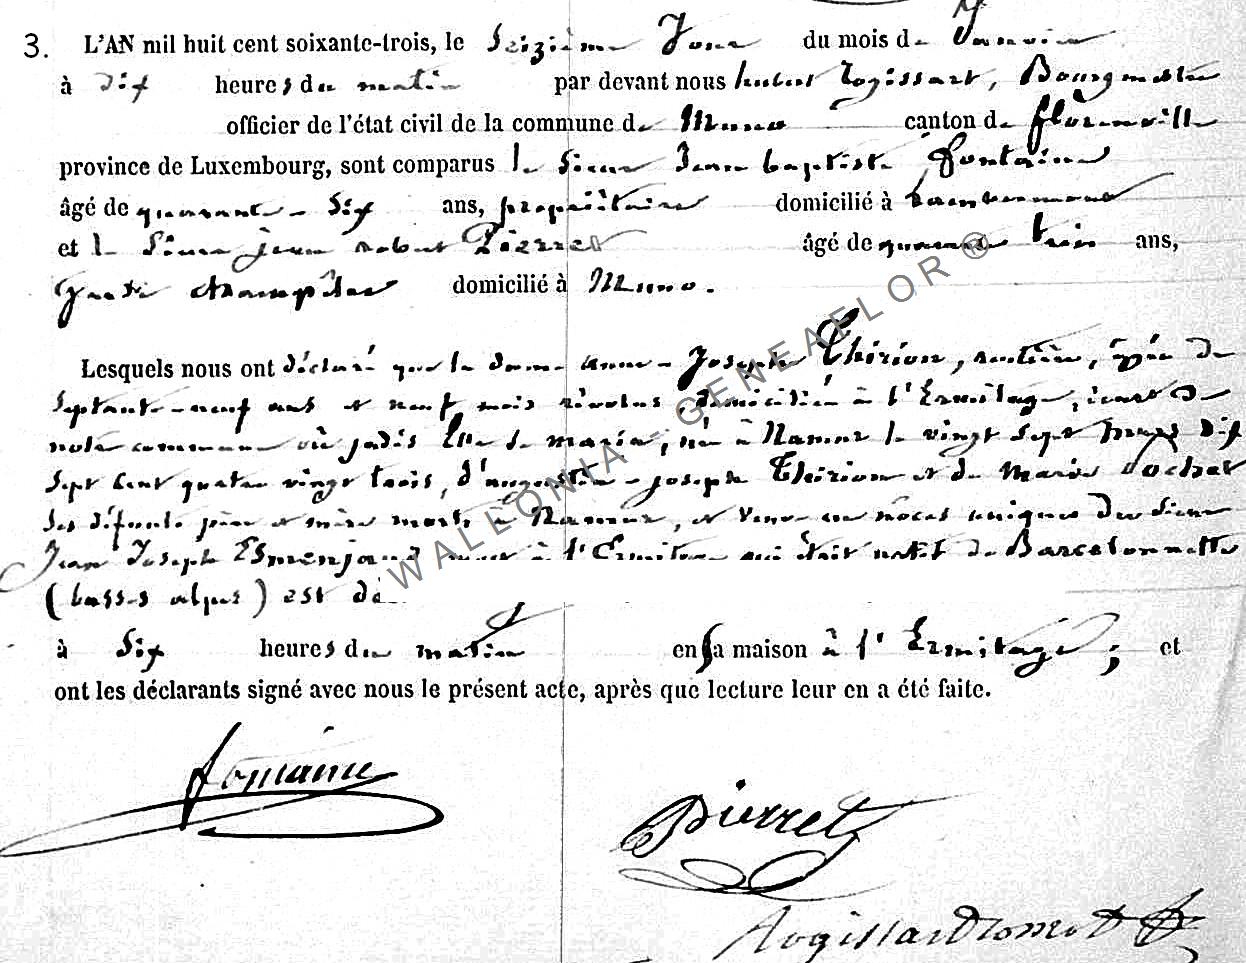 3. L'AN mil huit cent soixante-trois, le Seizième Jour du mois de Janvier
à dix heures du matin par devant nous hubert Rogissart, Bourgmestre
officier de l'état civil de la commune de Muno canton de florenville
province de Luxembourg, sont comparus le Sieur Jean baptiste fontaine
âgé de quarante-six ans, propriétaire domicilié à Lambermont
et le Sieur jean robert Pierret âgé de quarante trois ans,
garde champêtre domicilié à Muno.
Lesquels nous ont déclaré que la dame anne-Joseph Thirion, rentière, âgée de
septante-neuf ans et neuf mois révolus, domiciliée à l'Ermitage, écart de
notre commune où jadis elle se maria, née à Namur le vingt sept mars dix
sept cent quatre vingt trois, d'augustin-joseph Thirion et de Marie
ses défunts père et mère morts à Namur, et veuve en nôces uniques du sieur
Jean Joseph Esmenjaud mort à l'Ermitage qui était natif de Barcelonnette
(basses alpes) est dé
à six heures du matin en sa maison à l'Ermitage; et
ont les déclarants signé avec nous le présent acte, après que lecture leur en a été faite.
fontaine
Pierret
Rogissart
WALLONIA - GENEAFLOR ®